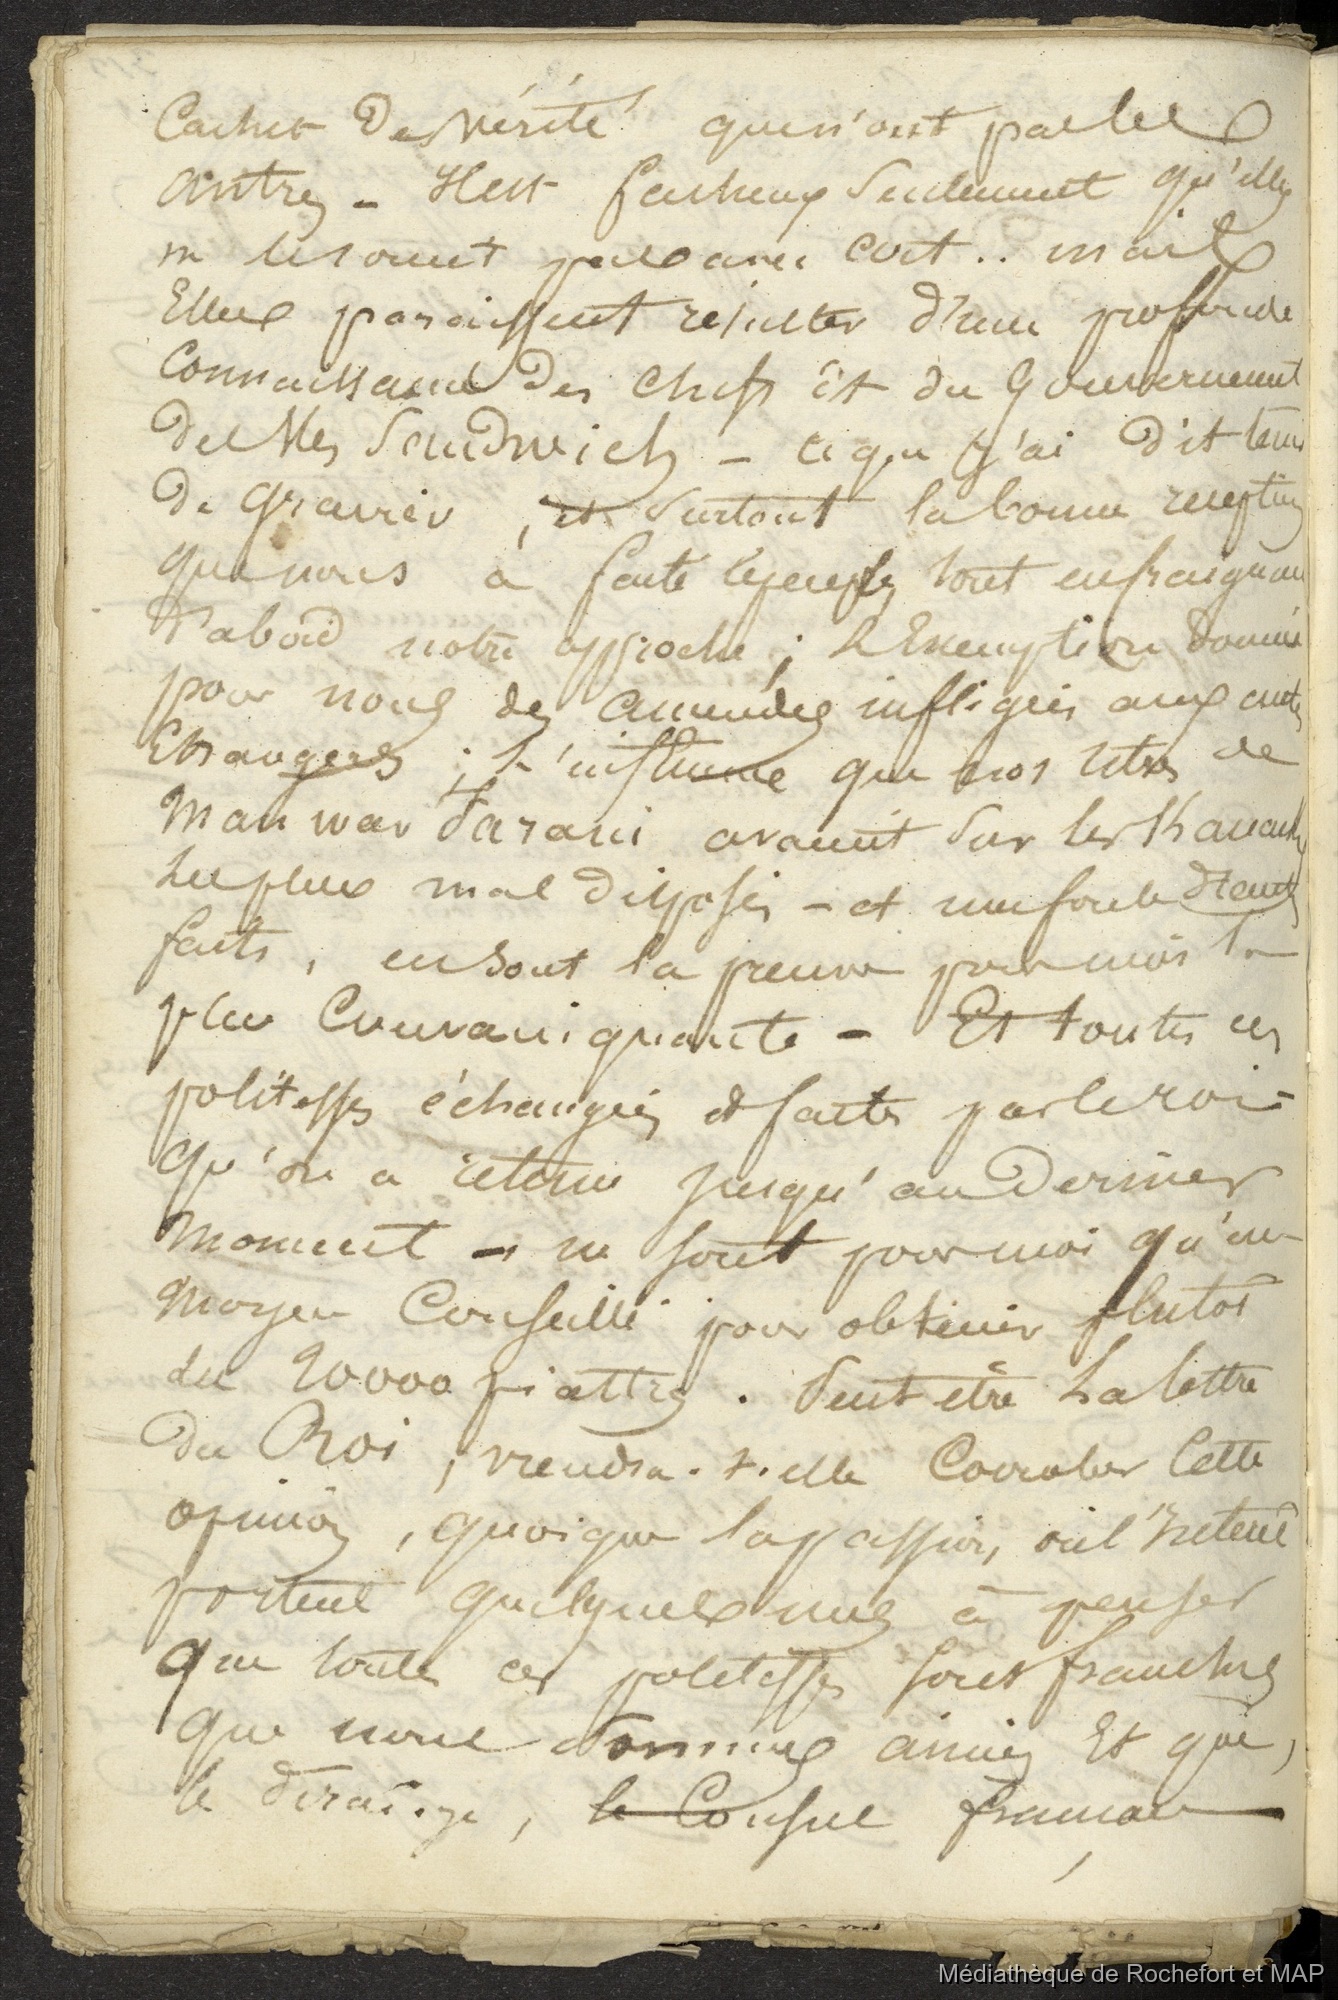 Cachet de vérité que n'ont pas les
autres - Il est facheux seulement qu'elles
ne les aient pas avec cert .. mais
Elles paraissent résulter d'une profonde
Connaissance des chefs et du Gouvernement
des Iles Sandwich - ce que j'ai dit tenir
de gravier, et surtout la bonne reception
que nous a faite le peuple tout en craignant
d'abord notre approche ; L'Exemption donnée
pour nous des amendes infligées aux autres
Etrangers ; L'influence que nos titres de
Man war Farani avaient sur les Kanacks
les plus mal disposés - et une foule d'autres
faits, en sont la preuve pour moi la
plus Convainquante - Et toutes ces
politesses échangées et faites par le roi -
qu'on a retenu jusqu'au dernier
moment - ne sont pour moi qu'un
moyen Conseillé pour obtenir plutot
les 20000 piastres . Peut être La lettre
du Roi, viendra-t-elle Corroborer Cette
opinion, quoique la passion, ou l'interet
portent quelques uns à penser
que toutes ces politesses sont franches
que nous sommes aimés Et que,
le dirai-je, le Consul francais
Médiathèque de Rochefort et MAP